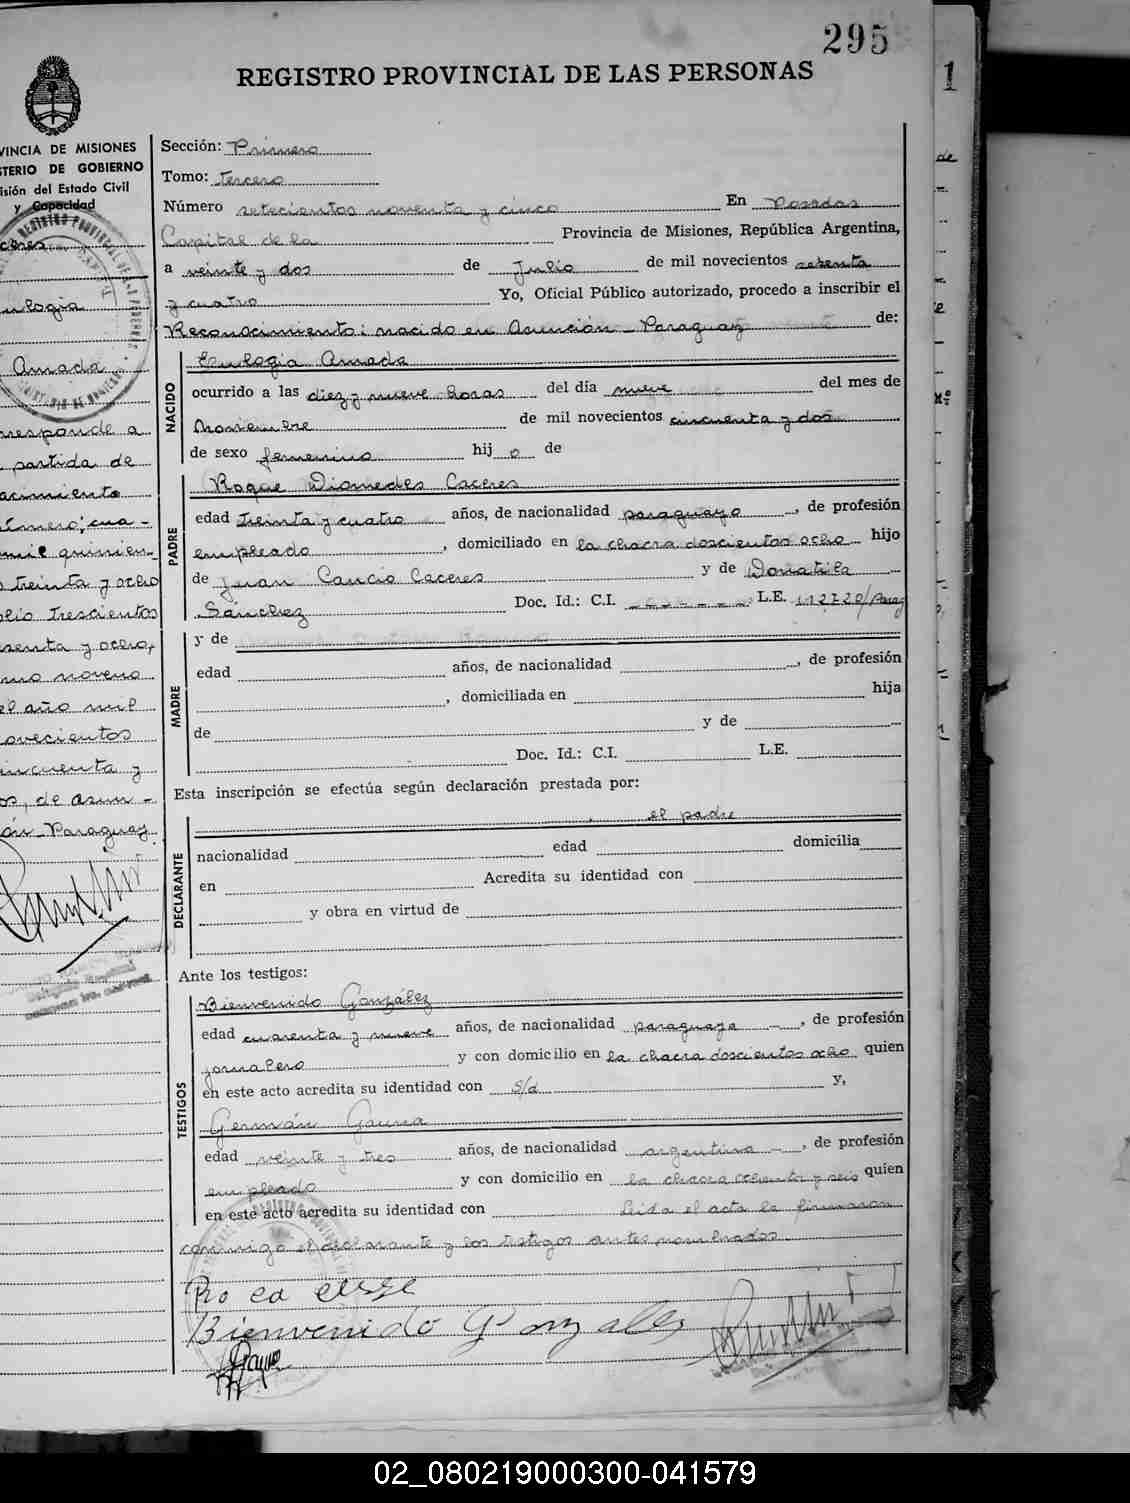 295
REGISTRO PROVINCIAL DE LAS PERSONAS
1
VINCIA DE MISIONES
STERIO DE GOBIERNO
isión del Estado Civil
y Capacidad
Sección: Primero
Tomo: Tercero
Número setecientos noventa y cinco En Posadas
Capital de la Provincia de Misiones, República Argentina,
a veinte y dos de Julio de mil novecientos setenta
y cuatro Yo, Oficial Público autorizado, procedo a inscribir el
Reconocimiento: nacido en Asunción - Paraguay de:
NACIDO
Eulogia Amada
ocurrido a las diez y nueve horas del día nueve del mes de
Noviembre de mil novecientos cincuenta y dos
de sexo femenino hijo de
PADRE
Roque Diomedes Caceres
edad treinta y cuatro años, de nacionalidad paraguayo, de profesión
empleado, domiciliado en la chacra doscientos ocho hijo
de Juan Cancio Caceres y de Donatila
Sánchez Doc. Id.: C.I. L.E. 112720/Parag
MADRE
y de
edad años, de nacionalidad, de profesión
, domiciliada en hija
de y de
Doc. Id.: C.I. L.E.
Esta inscripción se efectúa según declaración prestada por:
DECLARANTE
el padre
nacionalidad edad domicilia
en Acredita su identidad con
y obra en virtud de
Ante los testigos:
TESTIGOS
Bienvenido González
edad cuarenta y nueve años, de nacionalidad paraguaya -, de profesión
jornalero y con domicilio en la chacra doscientos ocho quien
en este acto acredita su identidad con s/d y,
Germán Gauna
edad veinte y tres años, de nacionalidad argentina -, de profesión
empleado y con domicilio en la chacra ochenta y seis quien
en este acto acredita su identidad con Leída el acta la firmaron
conmigo el declarante y los testigos antes nombrados.
Bienvenido Gonzalez
ceres
ulogia
Amada
rresponde a
partida de
acimiento
úmero; cua-
mil quinien-
s treinta y ocho
olio trescientos
senta y ocho,
mo noveno
el año mil
ovecientos
incuenta y
os, de asun-
ón - Paraguay.
02_080219000300-041579